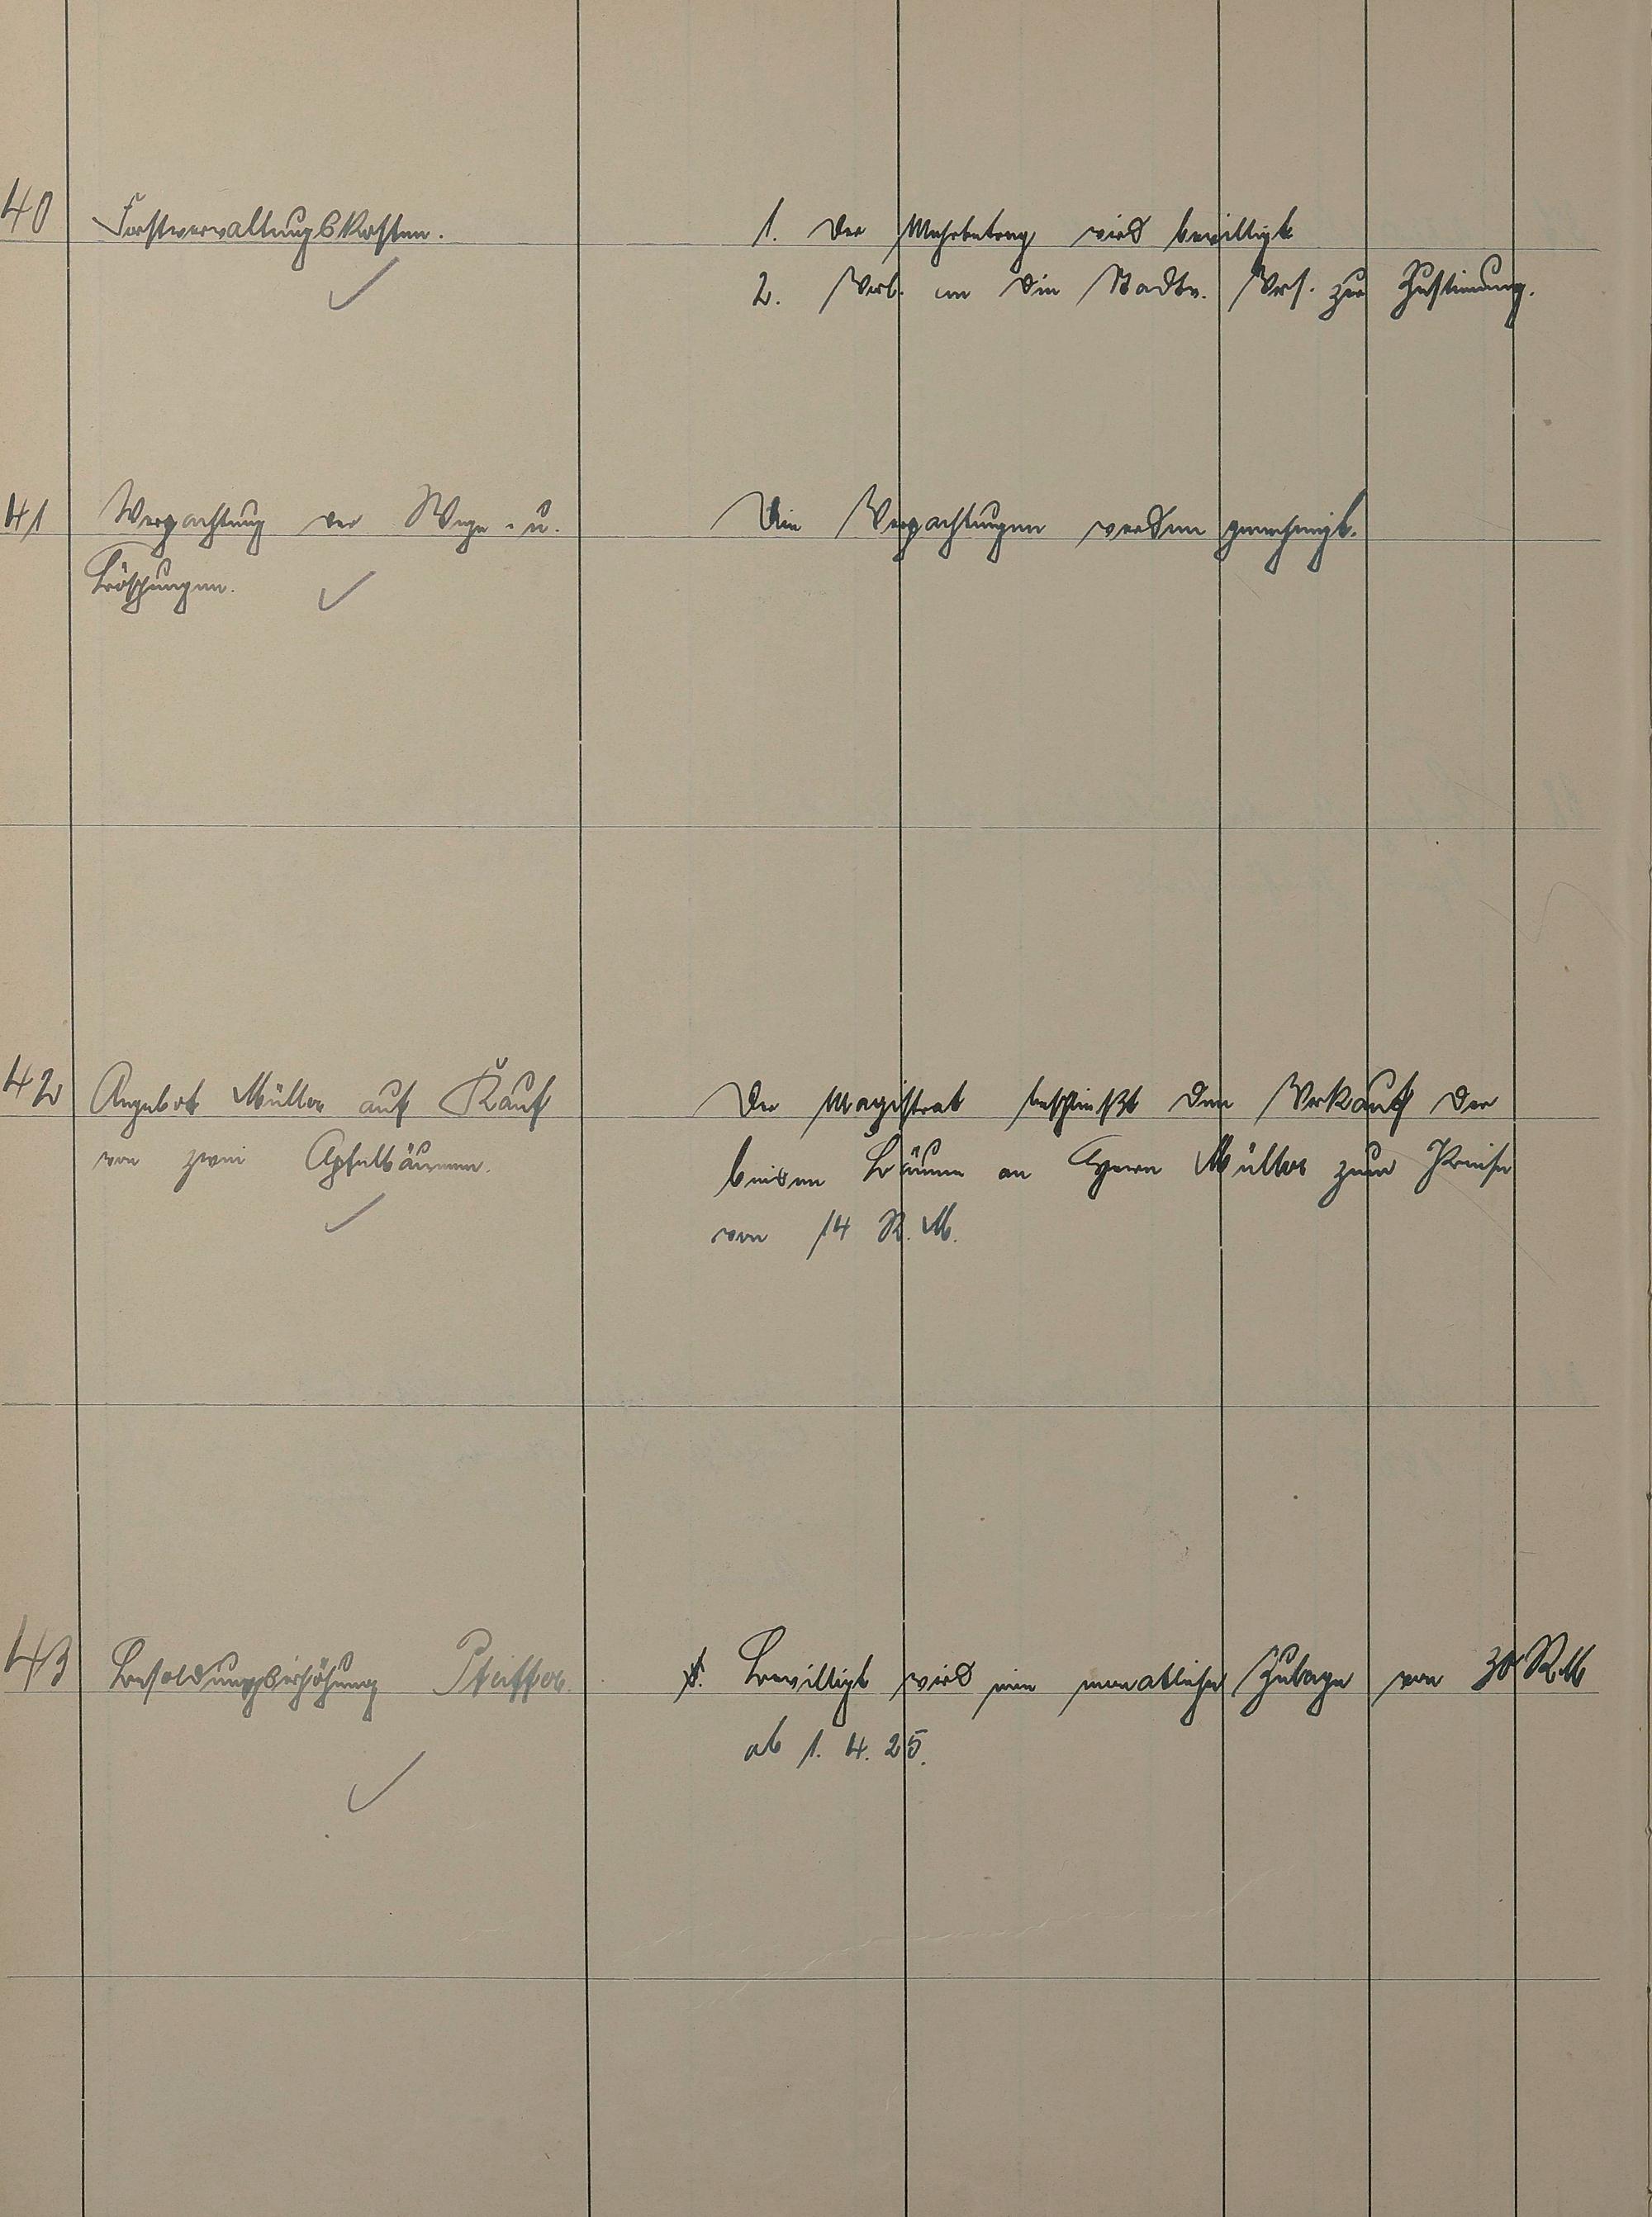 40 Forstverwaltungskosten.
1. Der Mehrbetrag wird bewilligt
2. Vorl. an die Stadtv. Vers. zur Zustimmung.
41 Verpachtung der Wege- u.
Böschungen.
Die Verpachtungen werden genehmigt.
42 Angebot Müller auf Kauf
von zwei Apfelbäumen.
Der Magistrat beschließt den Verkauf der
beiden Bäume an Müller zum Preise
von 14 R.M.
43 Besoldungserhöhung Pfeiffer.
Bewilligt wird eine monatliche Zulage von 30 RM
ab 1. 4. 25.